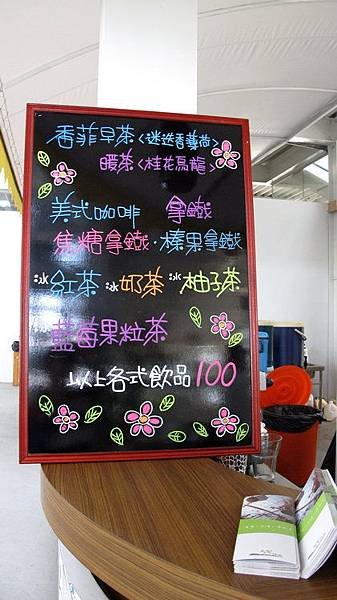 香菲早茶<迷迭香薄荷>
暖茶<桂花烏龍>
美式咖啡 拿鐵
焦糖拿鐵·榛果拿鐵
冰紅茶 冰奶茶 冰柚子茶
藍莓果粒茶
以上各式飲品100